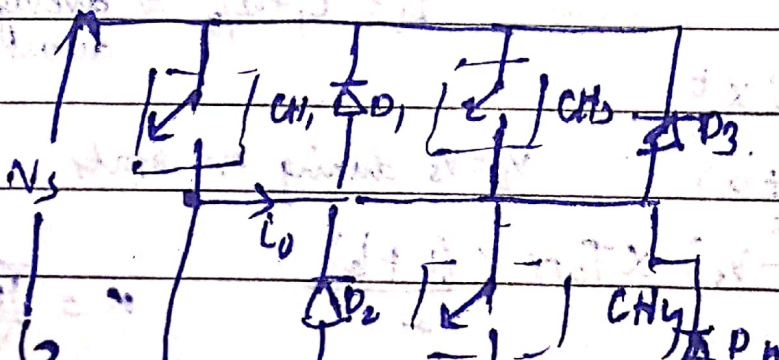 CH₁ D₁ CH₃ D₃
Vs
i₀
D₂ CH₄
D₄